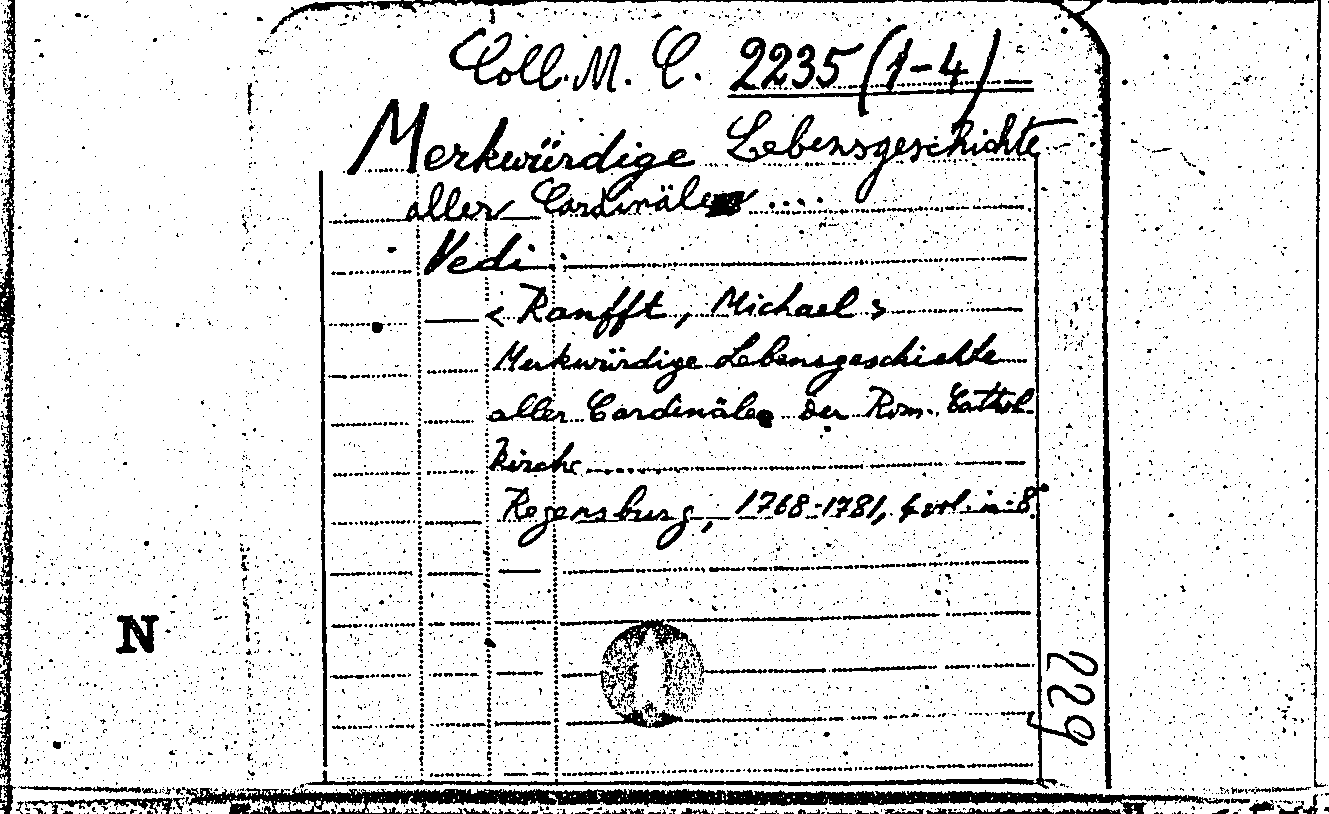 Coll. M. C. 2235 (1-4)
Merkwürdige Lebensgeschichte
aller Cardinäle ....
Vedi:
< Ranfft, Michael >
Merkwürdige Lebensgeschichte
aller Cardinäle der Rom. Cathol.
Kirche ......
Regensburg, 1768-1781, 4 vol. in-8°.
N
229